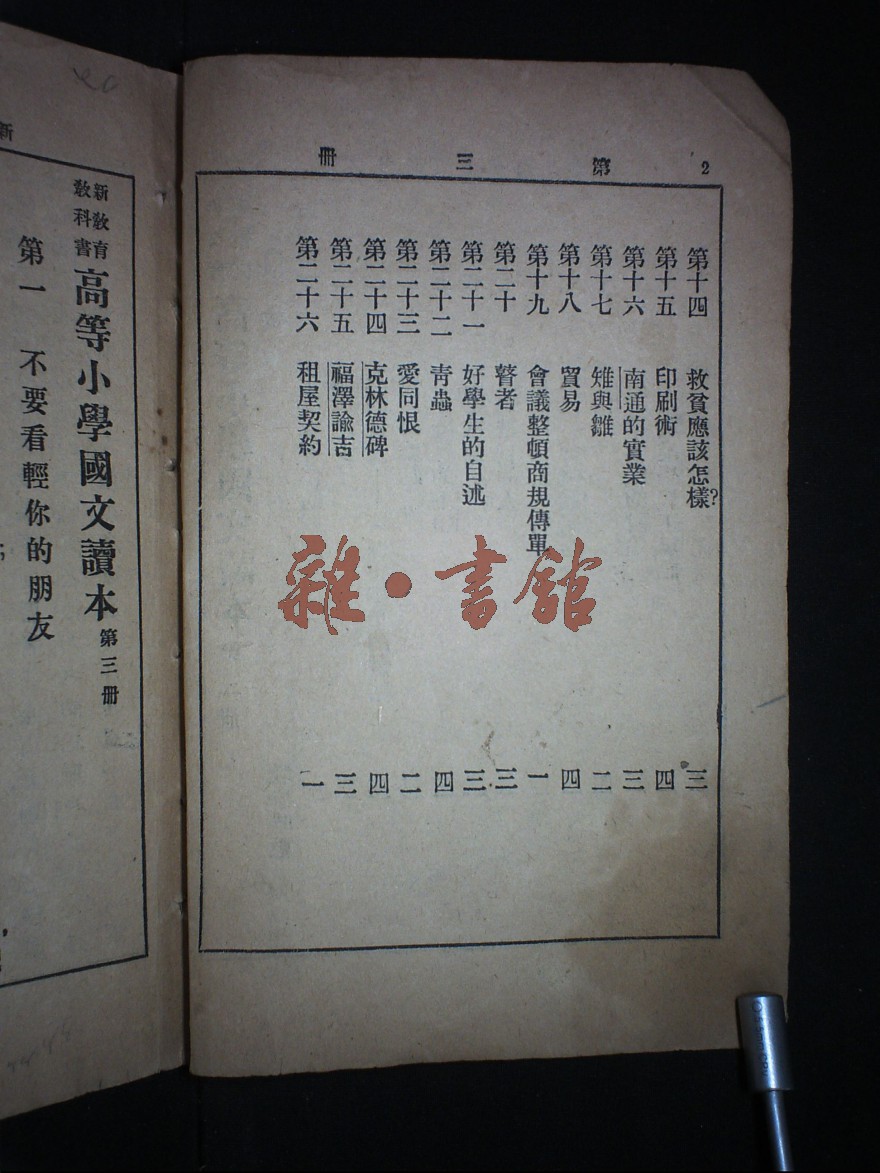 2 第三册
第十四 救貧應該怎樣? 三
第十五 印刷術 四
第十六 南通的實業 三
第十七 雉與雛 二
第十八 貿易 四
第十九 會議整頓商規傳單 一
第二十 瞽者 三
第二十一 好學生的自述 三
第二十二 青蟲 四
第二十三 愛同恨 二
第二十四 克林德碑 四
第二十五 福澤諭吉 三
第二十六 租屋契約 一
雜·書館
新
新教育教科書 高等小學國文讀本 第三册
第一 不要看輕你的朋友